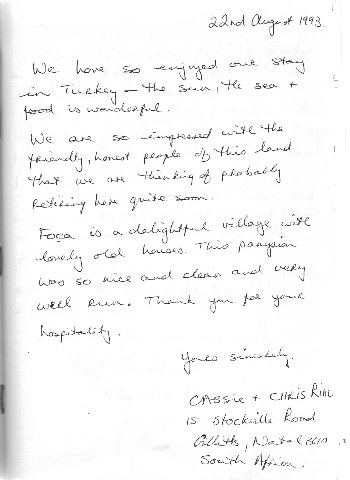 22nd August 1993.
We have so enjoyed our stay
in Turkey — the sun, the sea +
food is wonderful.
We are so impressed with the
friendly, honest people of this land
that we are thinking of probably
retiring here quite soon.
Foça is a delightful village with
lovely old houses. This pansyion
was so nice and clean and very
well run. Thank you for your
hospitality.
Yours sincerely.
CASSIE + CHRIS
15 Stockville Road
Natal
South Africa.